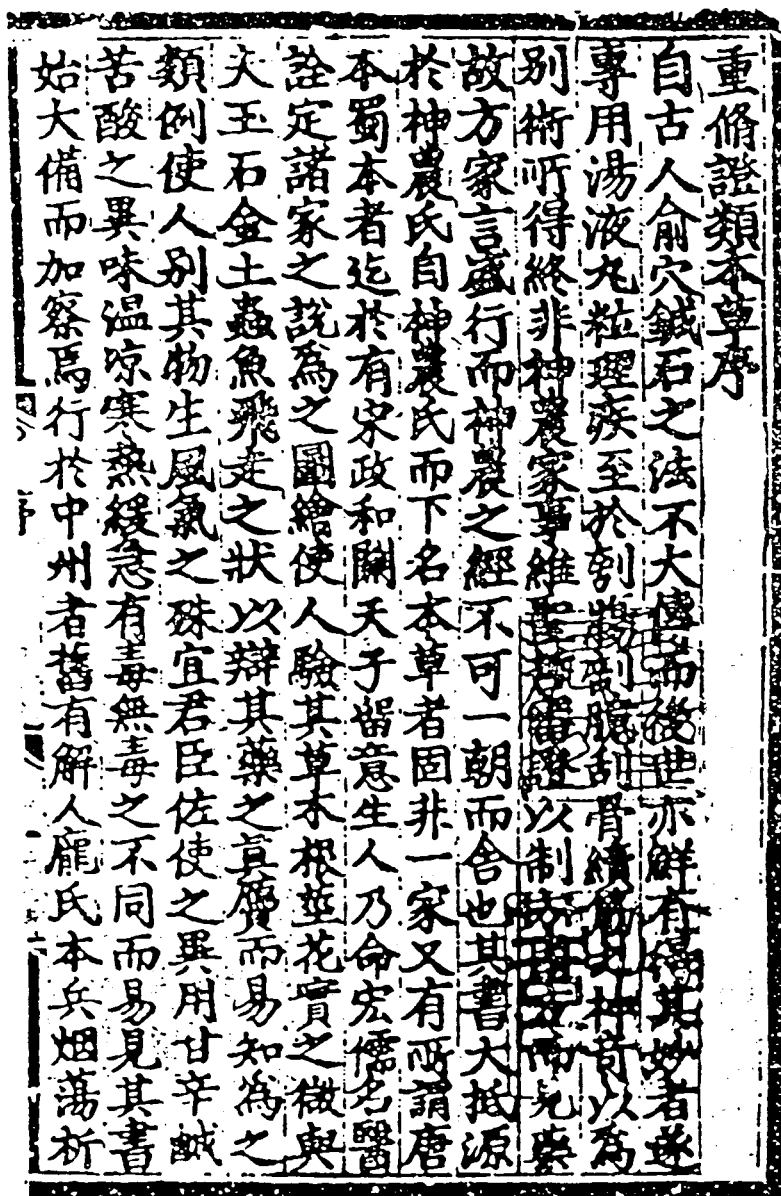 重脩證類本草序
自古人俞穴鍼石之法不大傳而後世亦鮮有得其妙者遂
專用湯液丸粒理疾至於刳腸剖臆刮骨續筋之神奇以為
别術所得終非神農家事維聖哲審證以制方因方而見藥
故方家言盛行而神農之經不可一朝而舍也其書大抵源
於神農氏自神農氏而下名本草者固非一家又有所謂唐
本蜀本者迄於有宋政和間天子留意生人乃命宏儒名醫
詮定諸家之說為之圖繪使人驗其草木根莖花實之微與
夫玉石金土蟲魚飛走之狀以辯其藥之真贗而易知為之
類例使人别其物生風氣之殊宜君臣佐使之異用甘辛鹹
苦酸之異味温凉寒熱緩急有毒無毒之不同而易見其書
始大備而加察焉行於中州者舊有解人龐氏本兵烟蕩析
序